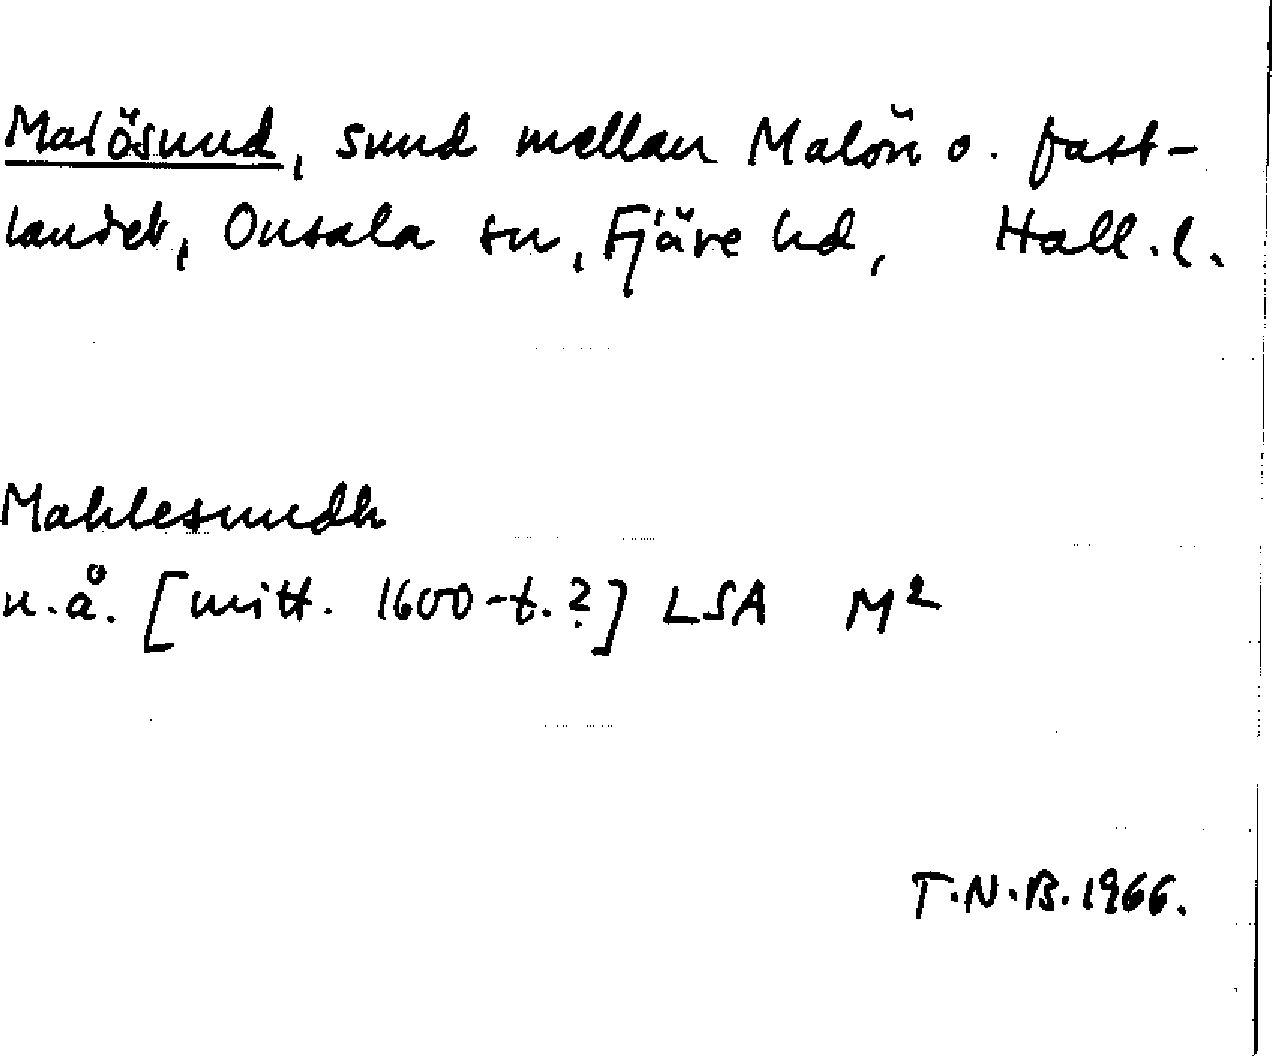 Malösund, sund mellan Malön o. fast-
landet, Onsala sn, Fjäre hd, Hall. l.
Mahlesundh
u.å. [mitt. 1600-t.?] LSA M2
T.N.B. 1966.